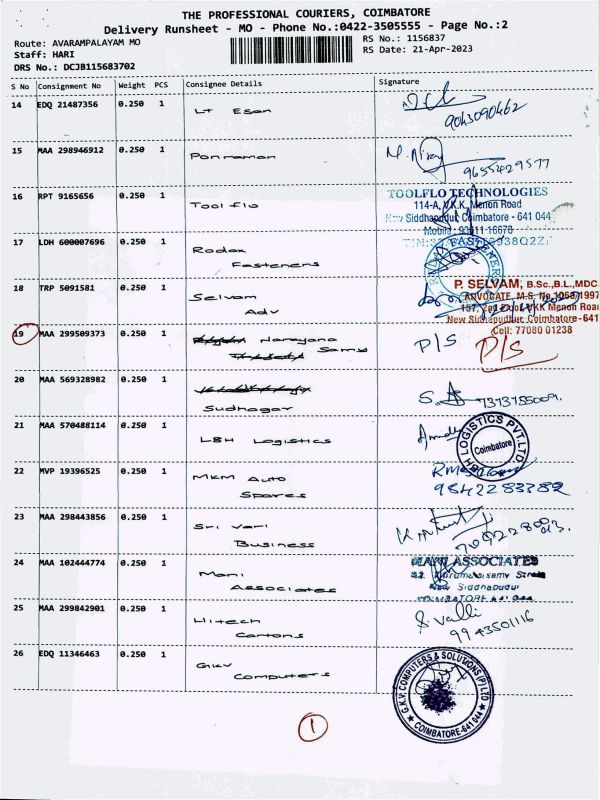 THE PROFESSIONAL COURIERS, COIMBATORE
Delivery Runsheet - MO - Phone No.:0422-3505555 - Page No.:2
Route: AVARAMPALAYAM MO
RS No.: 1156837
Staff: HARI
RS Date: 21-Apr-2023
DRS No.: DCJB115683702
S No Consignment No Weight PCS Consignee Details Signature
14 EDQ 21487356 0.250 1 Lt Esan
9043090462
15 MAA 298946912 0.250 1 Ponraman
9655429577
16 RPT 9165656 0.250 1 Tool flo
TOOLFLO TECHNOLOGIES
114-A, V.K.K. Menon Road
New Siddhapudur, Coimbatore - 641 044
17 LDH 600007696 0.250 1 Rodax
Fasteners
18 TRP 5091581 0.250 1 Selvam
Adv
P. SELVAM, B.Sc.,B.L.,MDC.
ADVOCATE, M.S. No.1060/1997
VKK Menon Road
Coimbatore-641
Cell: 77080 01238
19 MAA 299509373 0.250 1 Narayana
Samy
P/S P/S
20 MAA 569328982 0.250 1
Sudhagar
21 MAA 570488114 0.250 1 LBH Logistics
LOGISTICS PVT.LTD.
Coimbatore
22 MVP 19396525 0.250 1 MKM Auto
Spares
9842283382
23 MAA 298443856 0.250 1 Sri vari
Business
24 MAA 102444774 0.250 1 Mani
Associates
MANI ASSOCIATES
New Siddhapudur
25 MAA 299842901 0.250 1 Hitech
Cartons
S. Valli
9943501116
26 EDQ 11346463 0.250 1 GKV
Computers
G.K.V. COMPUTERS & SOLUTIONS (P) LTD
COIMBATORE-641 044
1